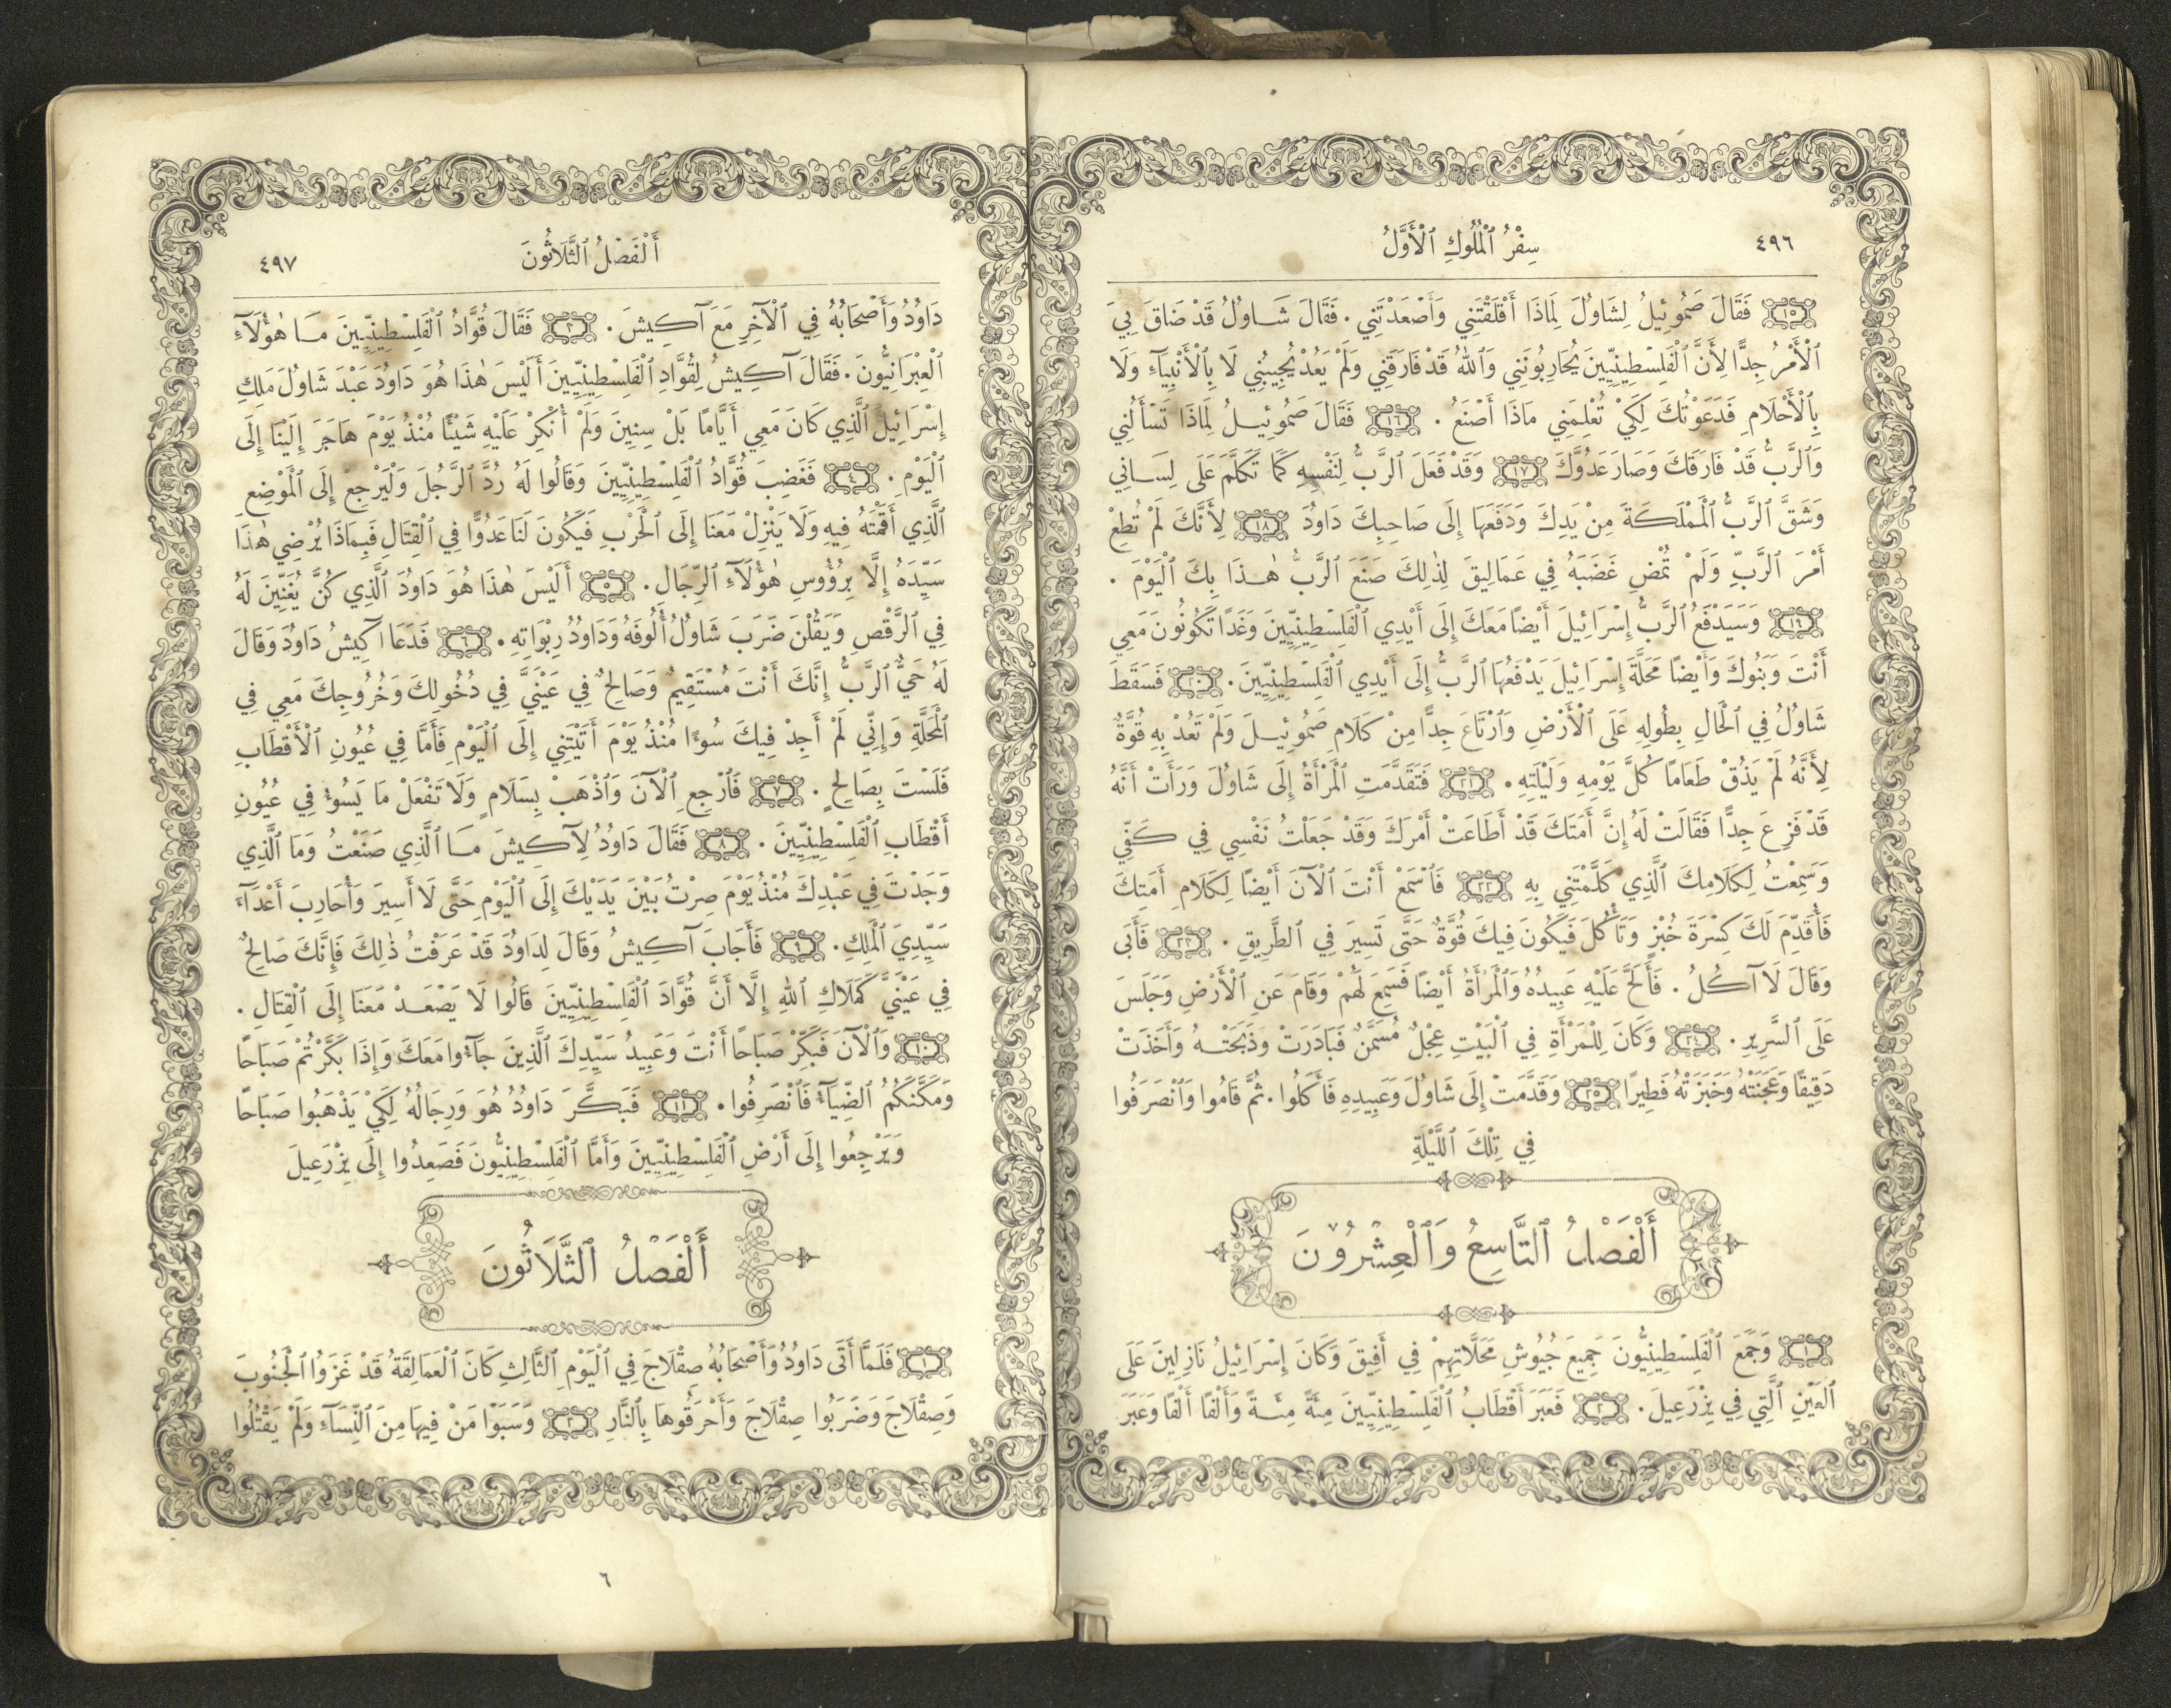 ٤٩٦
سِفْرُ ٱلْمُلُوكِ ٱلْأَوَّلُ
١٥ فَقَالَ صَمُوئِيلُ لِشَاوُلَ لِمَاذَا أَقْلَقْتَنِي وَأَصْعَدْتَنِي . فَقَالَ شَاوُلُ قَدْ ضَاقَ بِيَ
ٱلْأَمْرُ جِدًّا لِأَنَّ ٱلْفَلِسْطِينِيِّينَ يُحَارِبُونَنِي وَٱللهُ قَدْ فَارَقَنِي وَلَمْ يَعُدْ يُجِيبُنِي لَا بِٱلْأَنْبِيَآءِ وَلَا
بِٱلْأَحْلَامِ فَدَعَوْتُكَ لِكَيْ تُعْلِمَنِي مَاذَا أَصْنَعُ . ١٦ فَقَالَ صَمُوئِيلُ لِمَاذَا تَسْأَلُنِي
وَٱلرَّبُّ قَدْ فَارَقَكَ وَصَارَ عَدُوَّكَ ١٧ وَقَدْ فَعَلَ ٱلرَّبُّ لِنَفْسِهِ كَمَا تَكَلَّمَ عَلَى لِسَانِي
وَشَقَّ ٱلرَّبُّ ٱلْمَمْلَكَةَ مِنْ يَدِكَ وَدَفَعَهَا إِلَى صَاحِبِكَ دَاوُدَ ١٨ لِأَنَّكَ لَمْ تُطِعْ
أَمْرَ ٱلرَّبِّ وَلَمْ تُمْضِ غَضَبَهُ فِي عَمَالِيقَ لِذٰلِكَ صَنَعَ ٱلرَّبُّ هٰذَا بِكَ ٱلْيَوْمَ .
١٩ وَسَيَدْفَعُ ٱلرَّبُّ إِسْرَائِيلَ أَيْضًا مَعَكَ إِلَى أَيْدِي ٱلْفَلِسْطِينِيِّينَ وَغَدًا تَكُونُونَ مَعِي
أَنْتَ وَبَنُوكَ وَأَيْضًا مَحَلَّةَ إِسْرَائِيلَ يَدْفَعُهَا ٱلرَّبُّ إِلَى أَيْدِي ٱلْفَلِسْطِينِيِّينَ . ٢٠ فَسَقَطَ
شَاوُلُ فِي ٱلْحَالِ بِطُولِهِ عَلَى ٱلْأَرْضِ وَٱرْتَاعَ جِدًّا مِنْ كَلَامِ صَمُوئِيلَ وَلَمْ تَعُدْ بِهِ قُوَّةٌ
لِأَنَّهُ لَمْ يَذُقْ طَعَامًا كُلَّ يَوْمِهِ وَلَيْلَتِهِ . ٢١ فَتَقَدَّمَتِ ٱلْمَرْأَةُ إِلَى شَاوُلَ وَرَأَتْ أَنَّهُ
قَدْ فَزِعَ جِدًّا فَقَالَتْ لَهُ إِنَّ أَمَتَكَ قَدْ أَطَاعَتْ أَمْرَكَ وَقَدْ جَعَلْتُ نَفْسِي فِي كَفِّي
وَسَمِعْتُ لِكَلَامِكَ ٱلَّذِي كَلَّمْتَنِي بِهِ ٢٢ فَٱسْمَعْ أَنْتَ ٱلْآنَ أَيْضًا لِكَلَامِ أَمَتِكَ
فَأُقَدِّمَ لَكَ كِسْرَةَ خُبْزٍ وَتَأْكُلَ فَيَكُونَ فِيكَ قُوَّةٌ حَتَّى تَسِيرَ فِي ٱلطَّرِيقِ . ٢٣ فَأَبَى
وَقَالَ لَا آكُلُ . فَأَلَحَّ عَلَيْهِ عَبِيدُهُ وَٱلْمَرْأَةُ أَيْضًا فَسَمِعَ لَهُمْ وَقَامَ عَنِ ٱلْأَرْضِ وَجَلَسَ
عَلَى ٱلسَّرِيرِ . ٢٤ وَكَانَ لِلْمَرْأَةِ فِي ٱلْبَيْتِ عِجْلٌ مُسَمَّنٌ فَبَادَرَتْ وَذَبَحَتْهُ وَأَخَذَتْ
دَقِيقًا وَعَجَنَتْهُ وَخَبَزَتْهُ فَطِيرًا ٢٥ وَقَدَّمَتْ إِلَى شَاوُلَ وَعَبِيدِهِ فَأَكَلُوا . ثُمَّ قَامُوا وَٱنْصَرَفُوا
فِي تِلْكَ ٱللَّيْلَةِ
أَلْفَصْلُ ٱلتَّاسِعُ وَٱلْعِشْرُونَ
١ وَجَمَعَ ٱلْفَلِسْطِينِيُّونَ جَمِيعَ جُيُوشِ مَحَلَّاتِهِمْ فِي أَفِيقَ وَكَانَ إِسْرَائِيلُ نَازِلِينَ عَلَى
ٱلْعَيْنِ ٱلَّتِي فِي يِزْرَعِيلَ . ٢ فَعَبَرَ أَقْطَابُ ٱلْفَلِسْطِينِيِّينَ مِئَةً مِئَةً وَأَلْفًا أَلْفًا وَعَبَرَ
أَلْفَصْلُ ٱلثَّلَاثُونَ
٤٩٧
دَاوُدُ وَأَصْحَابُهُ فِي ٱلْآخِرِ مَعَ آكِيشَ . ٣ فَقَالَ قُوَّادُ ٱلْفَلِسْطِينِيِّينَ مَا هٰؤُلَآءِ
ٱلْعِبْرَانِيُّونَ . فَقَالَ آكِيشُ لِقُوَّادِ ٱلْفَلِسْطِينِيِّينَ أَلَيْسَ هٰذَا هُوَ دَاوُدَ عَبْدَ شَاوُلَ مَلِكِ
إِسْرَائِيلَ ٱلَّذِي كَانَ مَعِي أَيَّامًا بَلْ سِنِينَ وَلَمْ أُنْكِرْ عَلَيْهِ شَيْئًا مُنْذُ يَوْمَ هَاجَرَ إِلَيْنَا إِلَى
ٱلْيَوْمِ . ٤ فَغَضِبَ قُوَّادُ ٱلْفَلِسْطِينِيِّينَ وَقَالُوا لَهُ رُدَّ ٱلرَّجُلَ وَلْيَرْجِعْ إِلَى ٱلْمَوْضِعِ
ٱلَّذِي أَقَمْتَهُ فِيهِ وَلَا يَنْزِلْ مَعَنَا إِلَى ٱلْحَرْبِ فَيَكُونَ لَنَا عَدُوًّا فِي ٱلْقِتَالِ فَبِمَاذَا يُرْضِي هٰذَا
سَيِّدَهُ إِلَّا بِرُؤُوسِ هٰؤُلَآءِ ٱلرِّجَالِ . ٥ أَلَيْسَ هٰذَا هُوَ دَاوُدَ ٱلَّذِي كُنَّ يُغَنِّينَ لَهُ
فِي ٱلرَّقْصِ وَيَقُلْنَ ضَرَبَ شَاوُلُ أُلُوفَهُ وَدَاوُدُ رِبْوَاتِهِ . ٦ فَدَعَا آكِيشُ دَاوُدَ وَقَالَ
لَهُ حَيٌّ ٱلرَّبُّ إِنَّكَ أَنْتَ مُسْتَقِيمٌ وَصَالِحٌ فِي عَيْنَيَّ فِي دُخُولِكَ وَخُرُوجِكَ مَعِي فِي
ٱلْمَحَلَّةِ وَإِنِّي لَمْ أَجِدْ فِيكَ سُوءًا مُنْذُ يَوْمَ أَتَيْتَنِي إِلَى ٱلْيَوْمِ فَأَمَّا فِي عُيُونِ ٱلْأَقْطَابِ
فَلَسْتَ بِصَالِحٍ . ٧ فَٱرْجِعِ ٱلْآنَ وَٱذْهَبْ بِسَلَامٍ وَلَا تَفْعَلْ مَا يَسُوءُ فِي عُيُونِ
أَقْطَابِ ٱلْفَلِسْطِينِيِّينَ . ٨ فَقَالَ دَاوُدُ لِآكِيشَ مَا ٱلَّذِي صَنَعْتُ وَمَا ٱلَّذِي
وَجَدْتَ فِي عَبْدِكَ مُنْذُ يَوْمَ صِرْتُ بَيْنَ يَدَيْكَ إِلَى ٱلْيَوْمِ حَتَّى لَا أَسِيرَ وَأُحَارِبَ أَعْدَآءَ
سَيِّدِيَ ٱلْمَلِكِ . ٩ فَأَجَابَ آكِيشُ وَقَالَ لِدَاوُدَ قَدْ عَرَفْتُ ذٰلِكَ فَإِنَّكَ صَالِحٌ
فِي عَيْنَيَّ كَمَلَاكِ ٱللهِ إِلَّا أَنَّ قُوَّادَ ٱلْفَلِسْطِينِيِّينَ قَالُوا لَا يَصْعَدْ مَعَنَا إِلَى ٱلْقِتَالِ .
١٠ وَٱلْآنَ فَبَكِّرْ صَبَاحًا أَنْتَ وَعَبِيدُ سَيِّدِكَ ٱلَّذِينَ جَآءُوا مَعَكَ وَإِذَا بَكَّرْتُمْ صَبَاحًا
وَمَكَّنَكُمُ ٱلضِّيَآءُ فَٱنْصَرِفُوا . ١١ فَبَكَّرَ دَاوُدُ هُوَ وَرِجَالُهُ لِكَيْ يَذْهَبُوا صَبَاحًا
وَيَرْجِعُوا إِلَى أَرْضِ ٱلْفَلِسْطِينِيِّينَ وَأَمَّا ٱلْفَلِسْطِينِيُّونَ فَصَعِدُوا إِلَى يِزْرَعِيلَ
أَلْفَصْلُ ٱلثَّلَاثُونَ
١ فَلَمَّا أَتَى دَاوُدُ وَأَصْحَابُهُ صِقْلَاجَ فِي ٱلْيَوْمِ ٱلثَّالِثِ كَانَ ٱلْعَمَالِقَةُ قَدْ غَزَوُا ٱلْجَنُوبَ
وَصِقْلَاجَ وَضَرَبُوا صِقْلَاجَ وَأَحْرَقُوهَا بِٱلنَّارِ ٢ وَسَبَوْا مَنْ فِيهَا مِنَ ٱلنِّسَآءِ وَلَمْ يَقْتُلُوا
٦